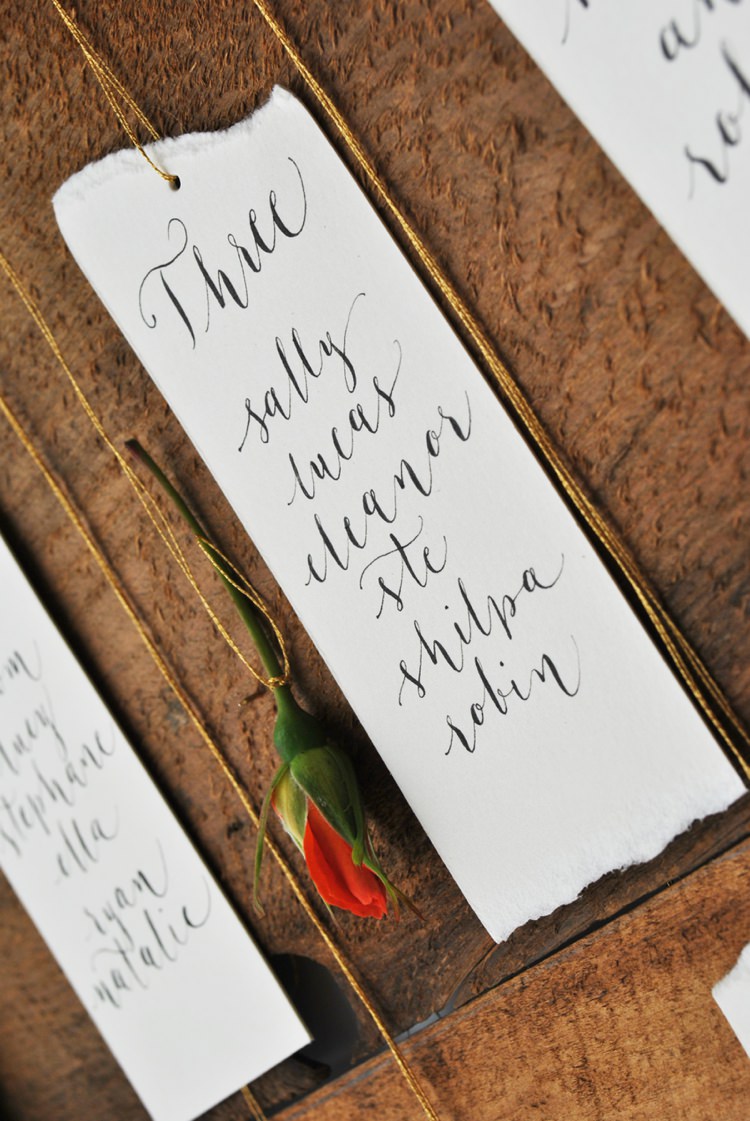 Three
sally
lucas
eleanor
ste
shilpa
robin
stephanie
ella
ryan
natalie